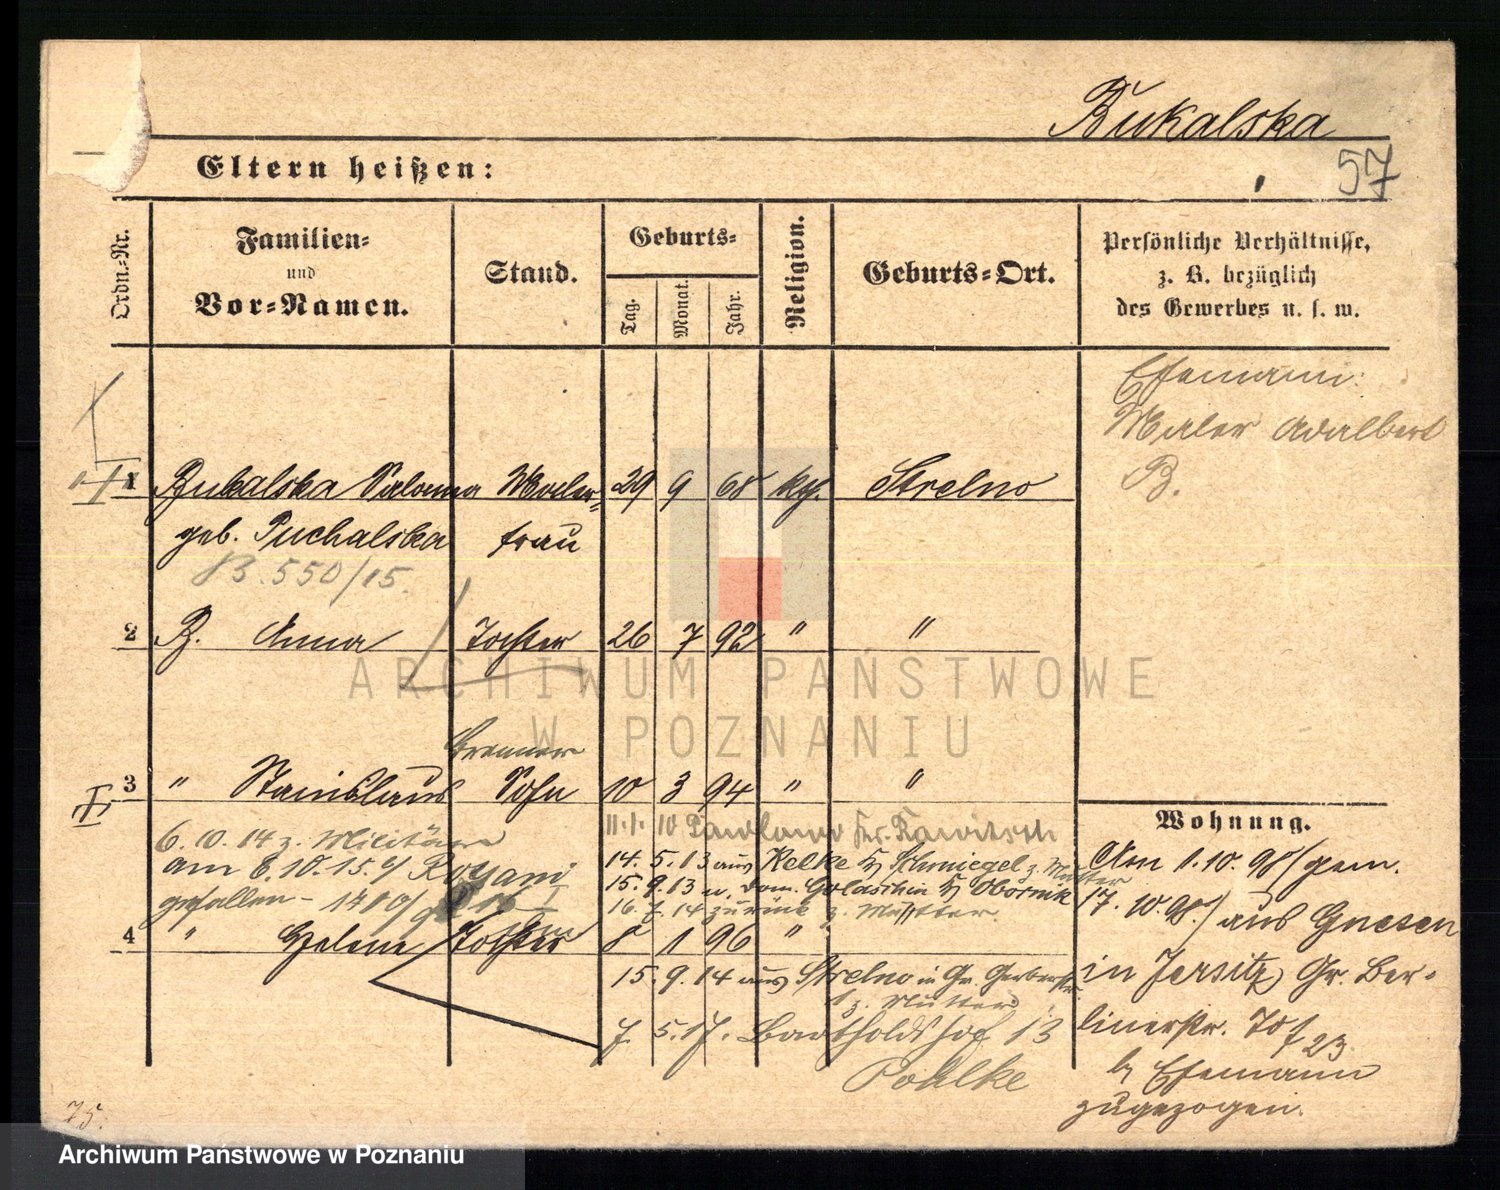 Bukalska
57
Eltern heißen:
Ordn.-Nr.
Familien-
und
Vor-Namen.
Stand.
Geburts-
Tag.
Monat.
Jahr.
Religion.
Geburts-Ort.
Persönliche Verhältnisse,
z. B. bezüglich
des Gewerbes u. s. w.
Ehemann:
Maler Adalbert
B.
1 Bukalska Salomea Maler- 29 9 68 kg. Strelno
geb. Puchalska frau
B. 550/15.
2 B. Anna Tochter 26 7 92 " "
Brenner
3 " Stanislaus Sohn 10 3 94 " "
6.10.14 z. Militär
11.1.10 Kr. Rawitsch
am 8.10.15
14.5.13 aus Kelke Schmiegel z. Mutter
gefallen
15.9.13 n. Dom. Obornik
16. 7. 14 zurück z. Mutter.
4 " Helene Tochter 8 1 96 "
15.9.14 aus Strelno in Gr. Gerberstr.
z. Mutter
7. 5. 17. Bartholdshof 13
Pohlke
Wohnung.
Am 1.10.98/gem.
17.10.98/ aus Gnesen
in Jersitz Gr. Ber-
linerstr. 70
23
b Ehemann
zugezogen.
75.
ARCHIWUM PAŃSTWOWE
W POZNANIU
Archiwum Państwowe w Poznaniu